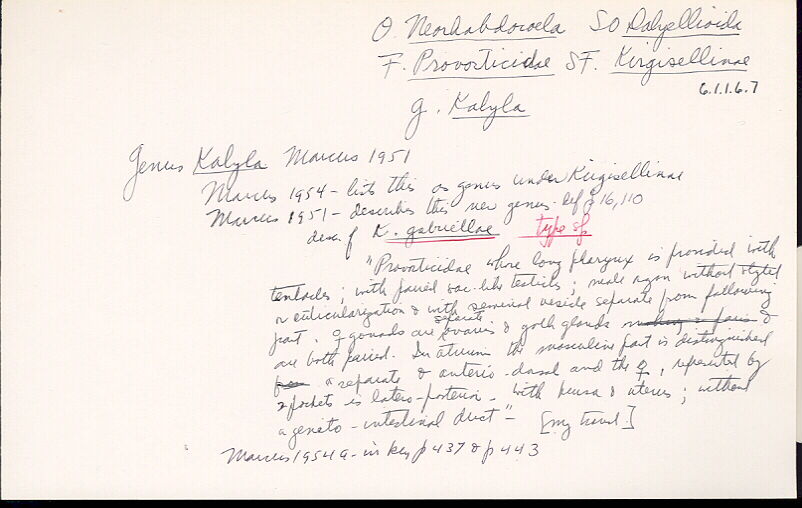 O. Neorhabdocoela SO Dalyellioida
F. Provorticidae SF. Kirgisellinae
6.1.1.6.7
g. Kalyla
Genus Kalyla Marcus 1951
Marcus 1954 - lists this as genus under Kirgisellinae
Marcus 1951 - describes this new genus. def p 16, 110
desc. of K. gabriellae type sp.
"Provorticidae whose long pharynx is provided with
tentacles; with paired sac-like testicles; male organ without stylet
or cuticularization & with seminal vesicle separate from following
part. ♀ gonads are separate ovaries & yolk glands &
are both paired. In atrium the masculine part is distinguished
separate & anterio-dorsal and the ♀, represented by
2 pockets is latero-posterior. With bursa & uterus; without
a genito-intestinal duct" - [my transl.]
Marcus 1954a - in key p 437 & p 443